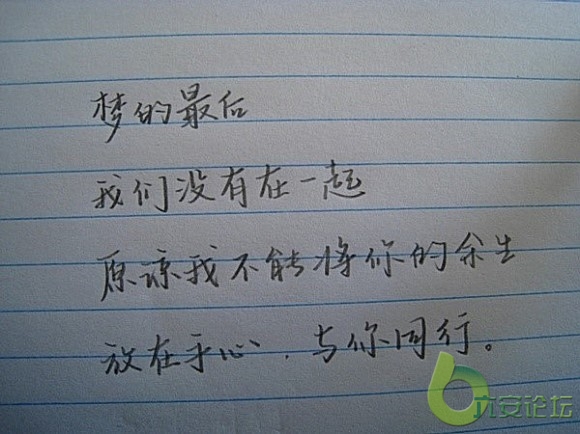 梦的最后
我们没有在一起
原谅我不能将你的余生
放在手心、与你同行。
六安论坛